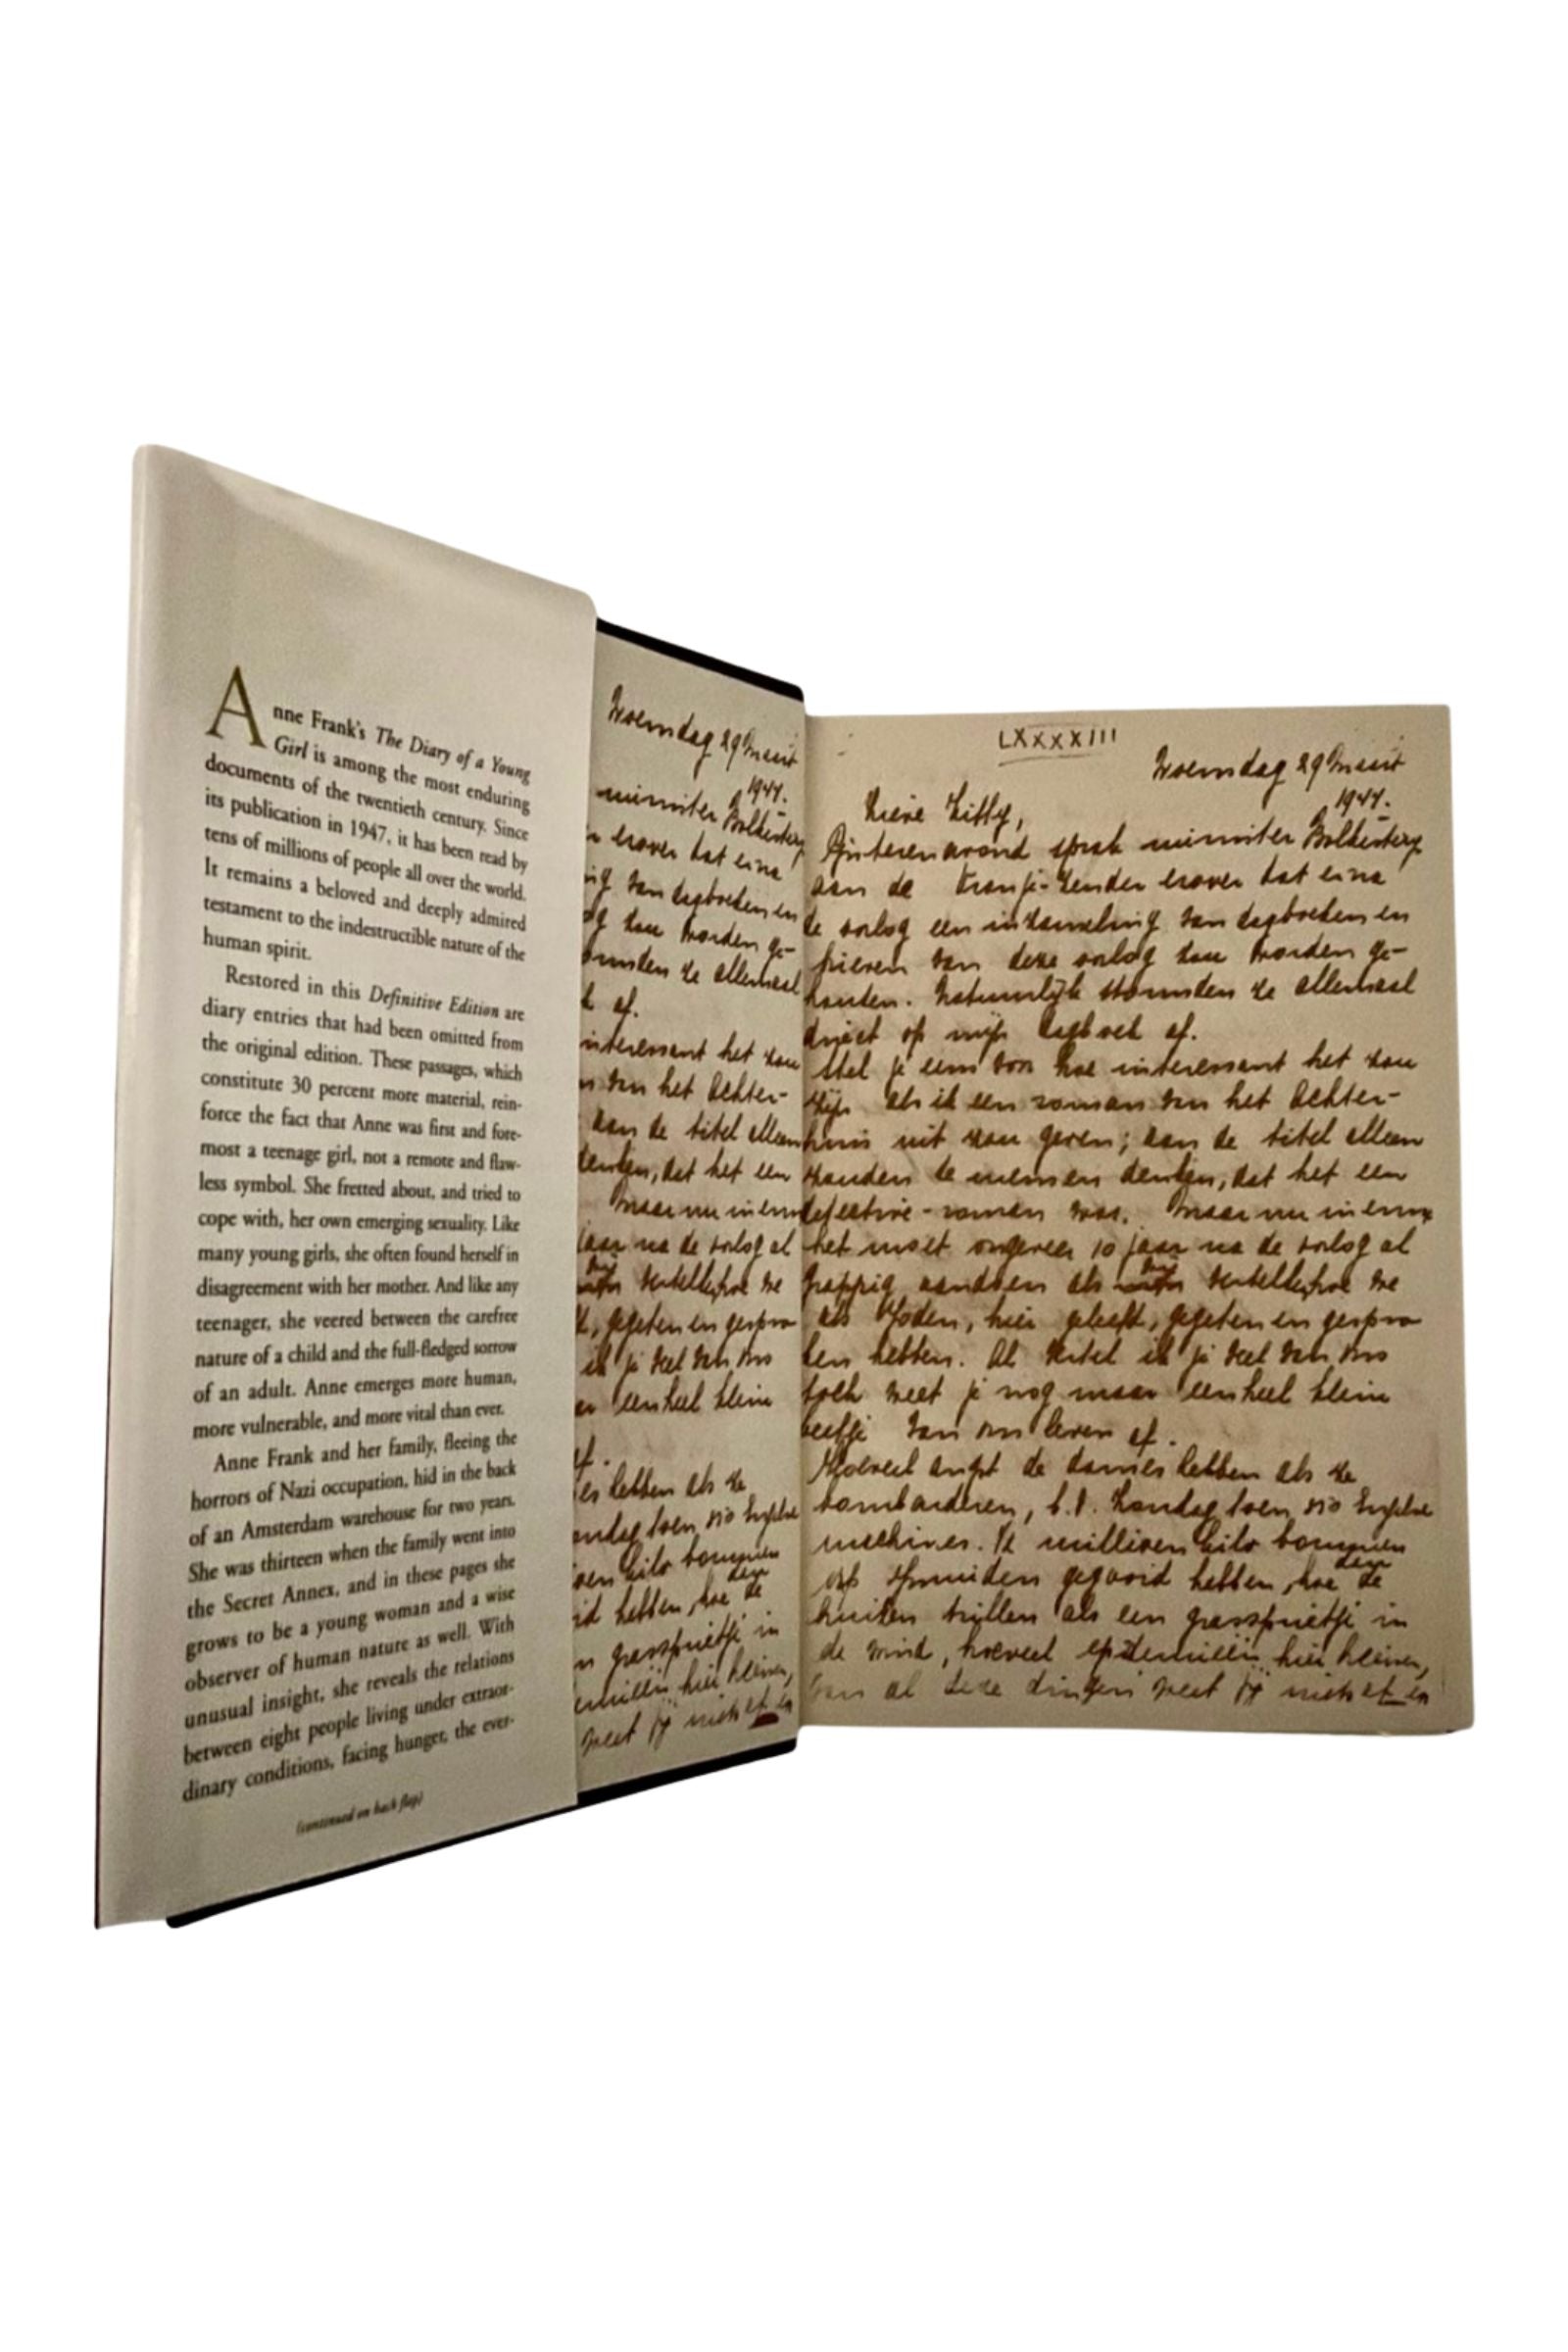 Anne Frank's The Diary of a Young
Girl is among the most enduring
documents of the twentieth century. Since
its publication in 1947, it has been read by
tens of millions of people all over the world.
It remains a beloved and deeply admired
testament to the indestructible nature of the
human spirit.
Restored in this Definitive Edition are
diary entries that had been omitted from
the original edition. These passages, which
constitute 30 percent more material, rein-
force the fact that Anne was first and fore-
most a teenage girl, not a remote and flaw-
less symbol. She fretted about, and tried to
cope with, her own emerging sexuality. Like
many young girls, she often found herself in
disagreement with her mother. And like any
teenager, she veered between the carefree
nature of a child and the full-fledged sorrow
of an adult. Anne emerges more human,
more vulnerable, and more vital than ever.
Anne Frank and her family, fleeing the
horrors of Nazi occupation, hid in the back
of an Amsterdam warehouse for two years.
She was thirteen when the family went into
the Secret Annex, and in these pages she
grows to be a young woman and a wise
observer of human nature as well. With
unusual insight, she reveals the relations
between eight people living under extraor-
dinary conditions, facing hunger, the ever-
(continued on back flap)
Woensdag 29 Maart
1944.
minister Bolkestein
erover dat er na
van dagboeken en
zou worden ge-
stormden ze allemaal
af.
interessant het zou
van het Achter-
aan de titel alleen
denken, dat het een
Maar nu in ernst
jaar na de oorlog al
vertellen, hoe we
gegeten en gespro
ik je veel van ons
een heel klein
af.
hebben als ze
Zondag toen 350 Engelse
kilo bommen
hebben, hoe dan de
grassprietje in
hier heersen,
weet jij niets af en
LXXXXIII
Woensdag 29 Maart
1944.
Lieve Kitty,
Gisterenavond sprak minister Bolkestein
aan de Oranje-zender erover dat er na
de oorlog een inzameling van dagboeken en
brieven van deze oorlog zou worden ge-
houden. Natuurlijk stormden ze allemaal
direct op mijn dagboek af.
Stel je eens voor hoe interessant het zou
zijn als ik een roman van het Achter-
huis uit zou geven; aan de titel alleen
zouden de mensen denken, dat het een
detective-roman was. Maar nu in ernst
het moet ongeveer 10 jaar na de oorlog al
grappig aandoen als vertellen, hoe we
als Joden, hier geleefd, gegeten en gespro
ken hebben. Al vertel ik je veel van ons
toch weet je nog maar een heel klein
beetje van ons leven af.
Hoeveel angst de dames hebben als ze
bombarderen, b.v. Zondag toen 350 Engelse
machines ½ millioen kilo bommen
op IJmuiden gegooid hebben, hoe dan de
huizen trillen als een grassprietje in
de wind, hoeveel epidemieën hier heersen,
van al deze dingen weet jij niets af en